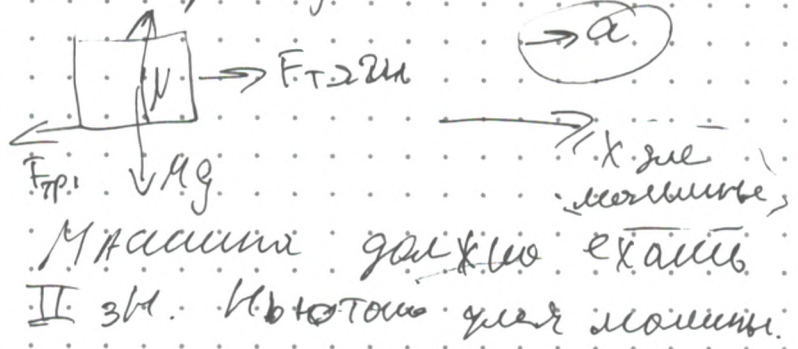 a
N
Fтяги
"X для
Fтр.
Mg
машины"
Машина должно ехать
II зН. Ньютона для машины.